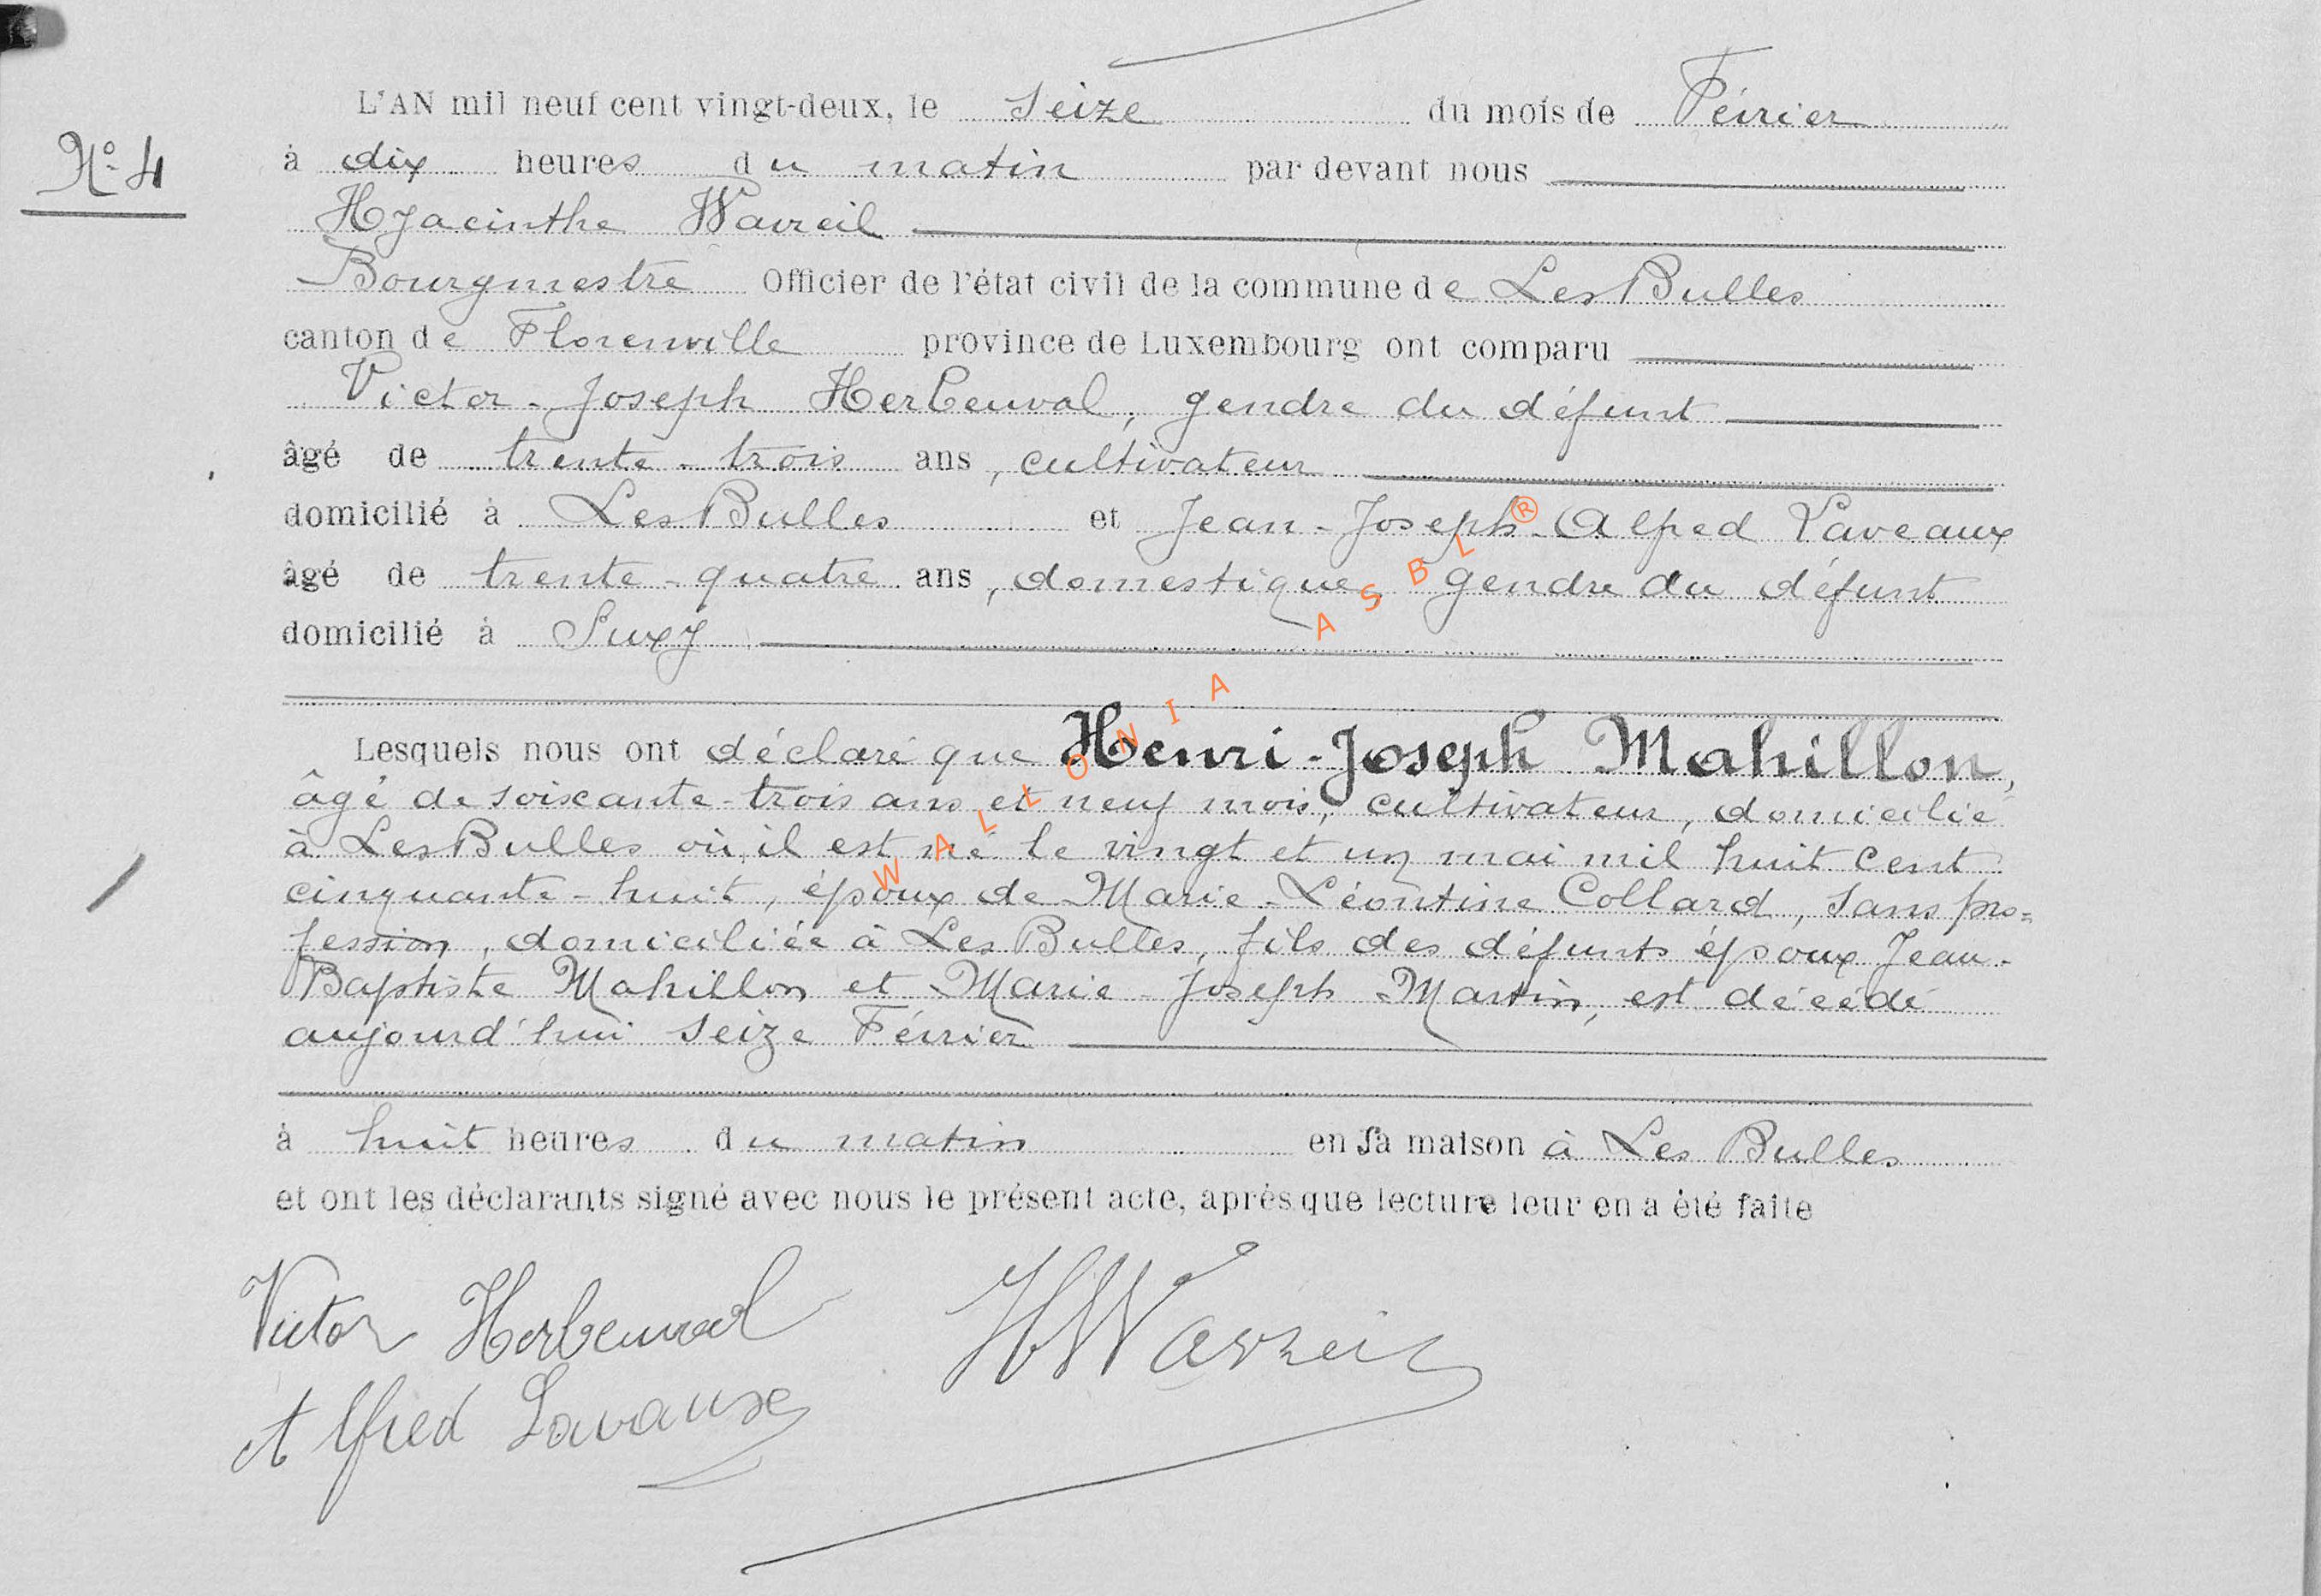 L'AN mil neuf cent vingt-deux, le seize du mois de Février
N° 4
à dix heures du matin par devant nous
Hyacinthe Wavreil
Bourgmestre Officier de l'état civil de la commune de Les Bulles
canton de Florenville province de Luxembourg ont comparu
Victor-Joseph Herbeuval, gendre du défunt
âgé de trente-trois ans, cultivateur
domicilié à Les Bulles et Jean-Joseph-Alfred Lavaux
âgé de trente-quatre ans, domestique, gendre du défunt
domicilié à Suxy
Lesquels nous ont déclaré que Henri-Joseph Mahillon,
âgé de soixante-trois ans et neuf mois, cultivateur, domicilié
à Les Bulles où il est né le vingt et un mai mil huit cent
cinquante-huit, époux de Marie-Léontine Collard, sans pro=
fession, domiciliée à Les Bulles, fils des défunts époux Jean-
Baptiste Mahillon et Marie-Joseph Martin, est décédé
aujourd'hui seize Février
à huit heures du matin en sa maison à Les Bulles
et ont les déclarants signé avec nous le présent acte, après que lecture leur en a été faite
Victor Herbeuval
HWavreil
Alfred Lavaux
WALLONIA ASBL ®